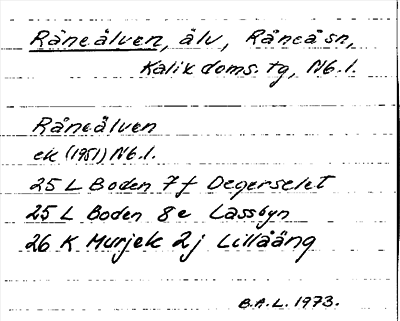 Råneälven, älv, Råneå sn,
Kalix doms. tg, Nb.l.
Råneälven
ek (1951) Nb.l.
25 L Boden 7f Degerselet
25 L Boden 8e Lassbyn
26 K Murjek 2j Lillåäng
B.A.L. 1973.